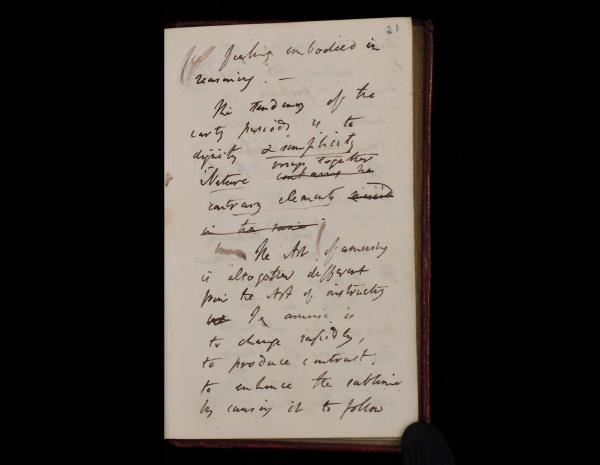 21
feeling embodied in
reasoning. —
The tendency of the
early periods is to
dignity & simplicity
brings together
Nature contains the
contrary elements
in the same
The Art of amusing
is altogether different
from the Art of instructing
To amuse is
to change rapidly,
to produce contrast.
to enhance the sublime
by causing it to follow